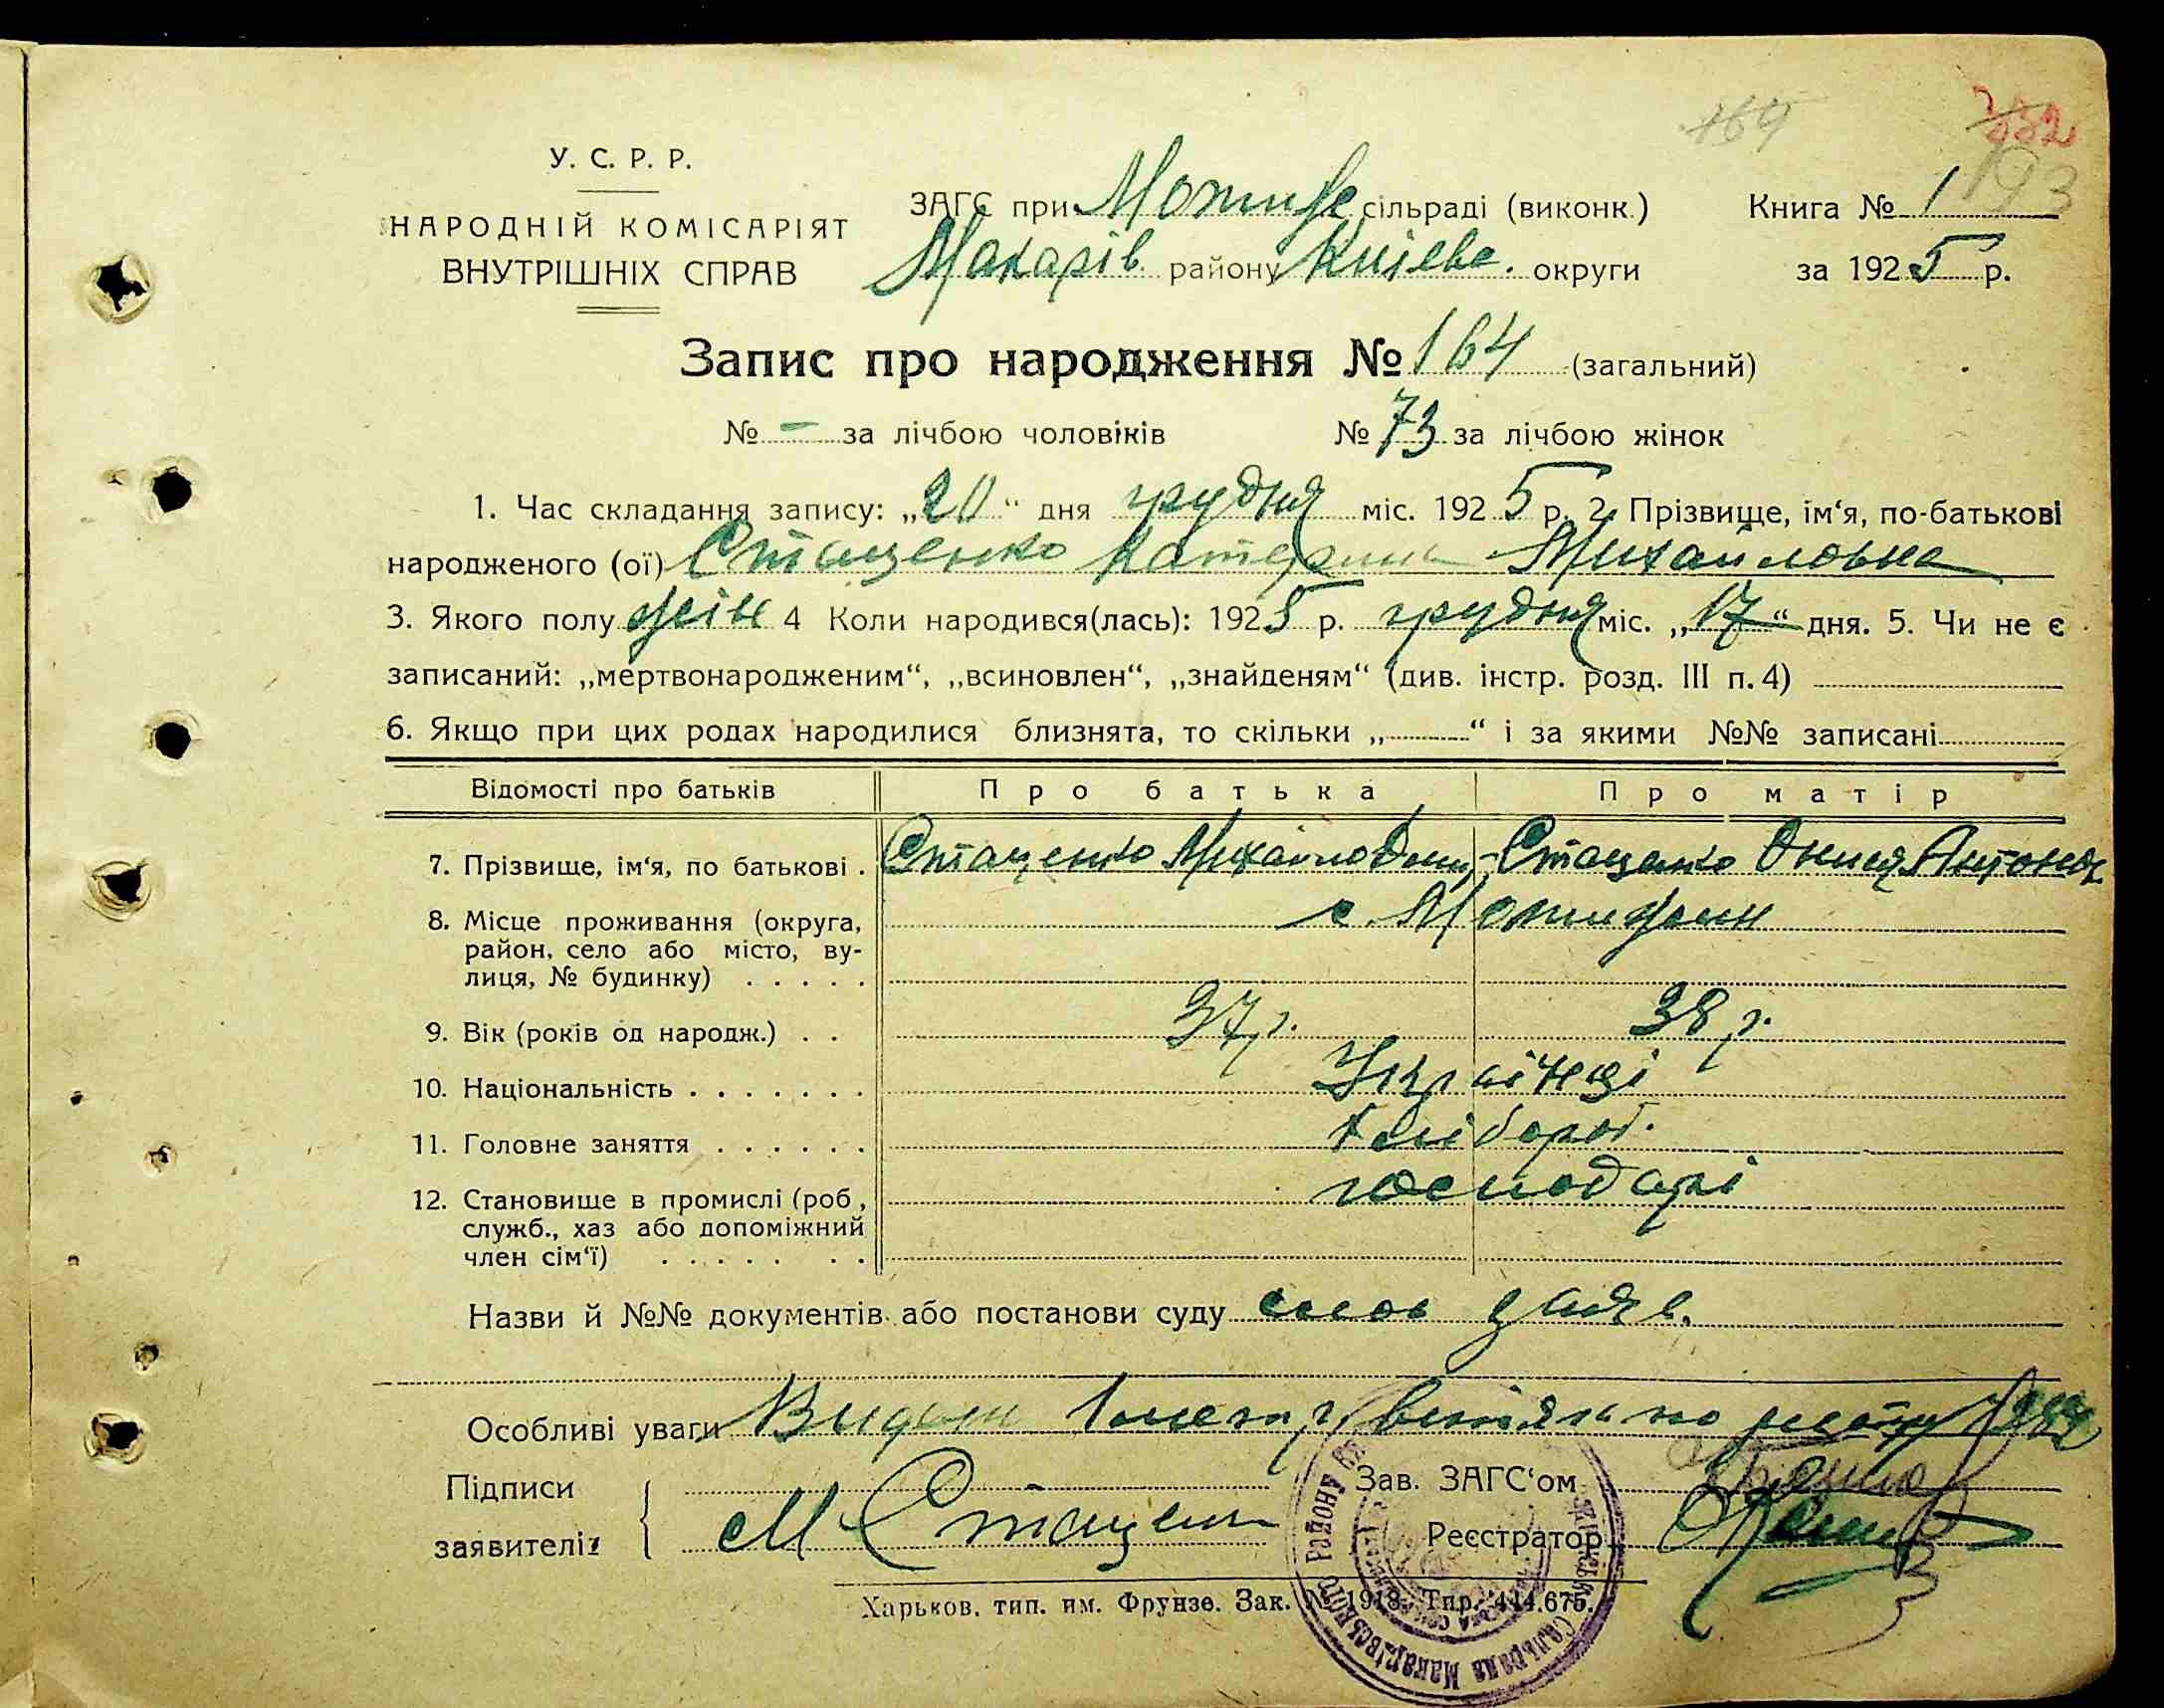 169 732
193
У. С. Р. Р.
НАРОДНІЙ КОМІСАРІЯТ
ВНУТРІШНІХ СПРАВ
ЗАГС при Мотиже сільраді (виконк.) Книга № 1
Макарів. району Київс. округи за 1925 р.
Запис про народження № 164 (загальний)
№ – за лічбою чоловіків № 73 за лічбою жінок
1. Час складання запису: „20“ дня грудня міс. 1925 р. 2. Прізвище, ім‘я, по-батькові
народженого (ої) Стаценко Катерина Михайловна
3. Якого полу жін 4 Коли народився(лась): 1925 р. грудня міс. „17“ дня. 5. Чи не є
записаний: „мертвонародженим“, „всиновлен“, „знайденям“ (див. інстр. розд. III п. 4)
6. Якщо при цих родах народилися близнята, то скільки „ “ і за якими №№ записані
Відомості про батьків Про батька Про матір
7. Прізвище, ім‘я, по батькові . Стаценко Михайло Стаценко Антонов.
8. Місце проживання (округа, с. Мотижин
район, село або місто, ву-
лиця, № будинку) . . . . .
9. Вік (років од народж.) . . 37 р. 38 р.
10. Національність . . . . . . . Українці
11. Головне заняття . . . . . . Хлібороб.
12. Становище в промислі (роб., господарі
служб., хаз або допоміжний
член сім‘ї) . . . . . . .
Назви й №№ документів або постанови суду слов заяв.
Особливі уваги Видан
Підписи
заявителів М Стаценко
Зав. ЗАГС‘ом
Реєстратор
Харьков. тип. им. Фрунзе. Зак. № 1918. Тир. 444.675.
Сельрада Макарівського району